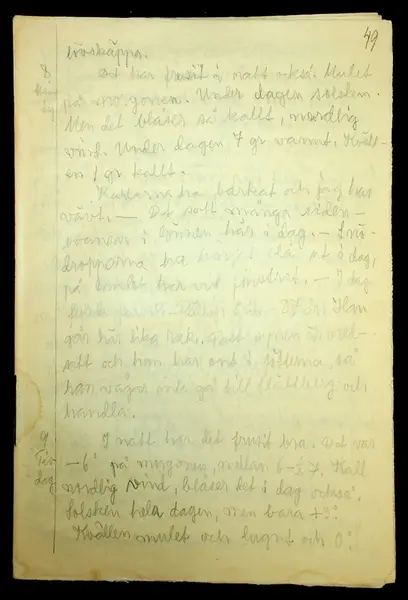 49
lövskäppa.
8. Det har frusit i natt också. Mulet
Mån på morgonen. Under dagen solsken.
dag Men det blåser så kallt, nordlig
vind. Under dagen 7 gr varmt. Kväll-
en 1 gr kallt.
Karlarna ha barkat och jag har
vävt. — Det satt många siden-
svansar i lönnen här i dag. — Snö-
dropparna ha börjat slå ut i dag,
på knutet har vid fönstret. — I dag
år. Han
går här lika rak. Fast
satt och han har ont i fötterna, så
han vågar inte gå till och
handla.
9. I natt har det frusit bra. Det var
Tis- —6° på morgonen, mellan 6-½7. Kall
dag nordlig vind, blåser det i dag också.
Solsken hela dagen, men bara +3°.
Kvällen mulet och lugnt och 0°.